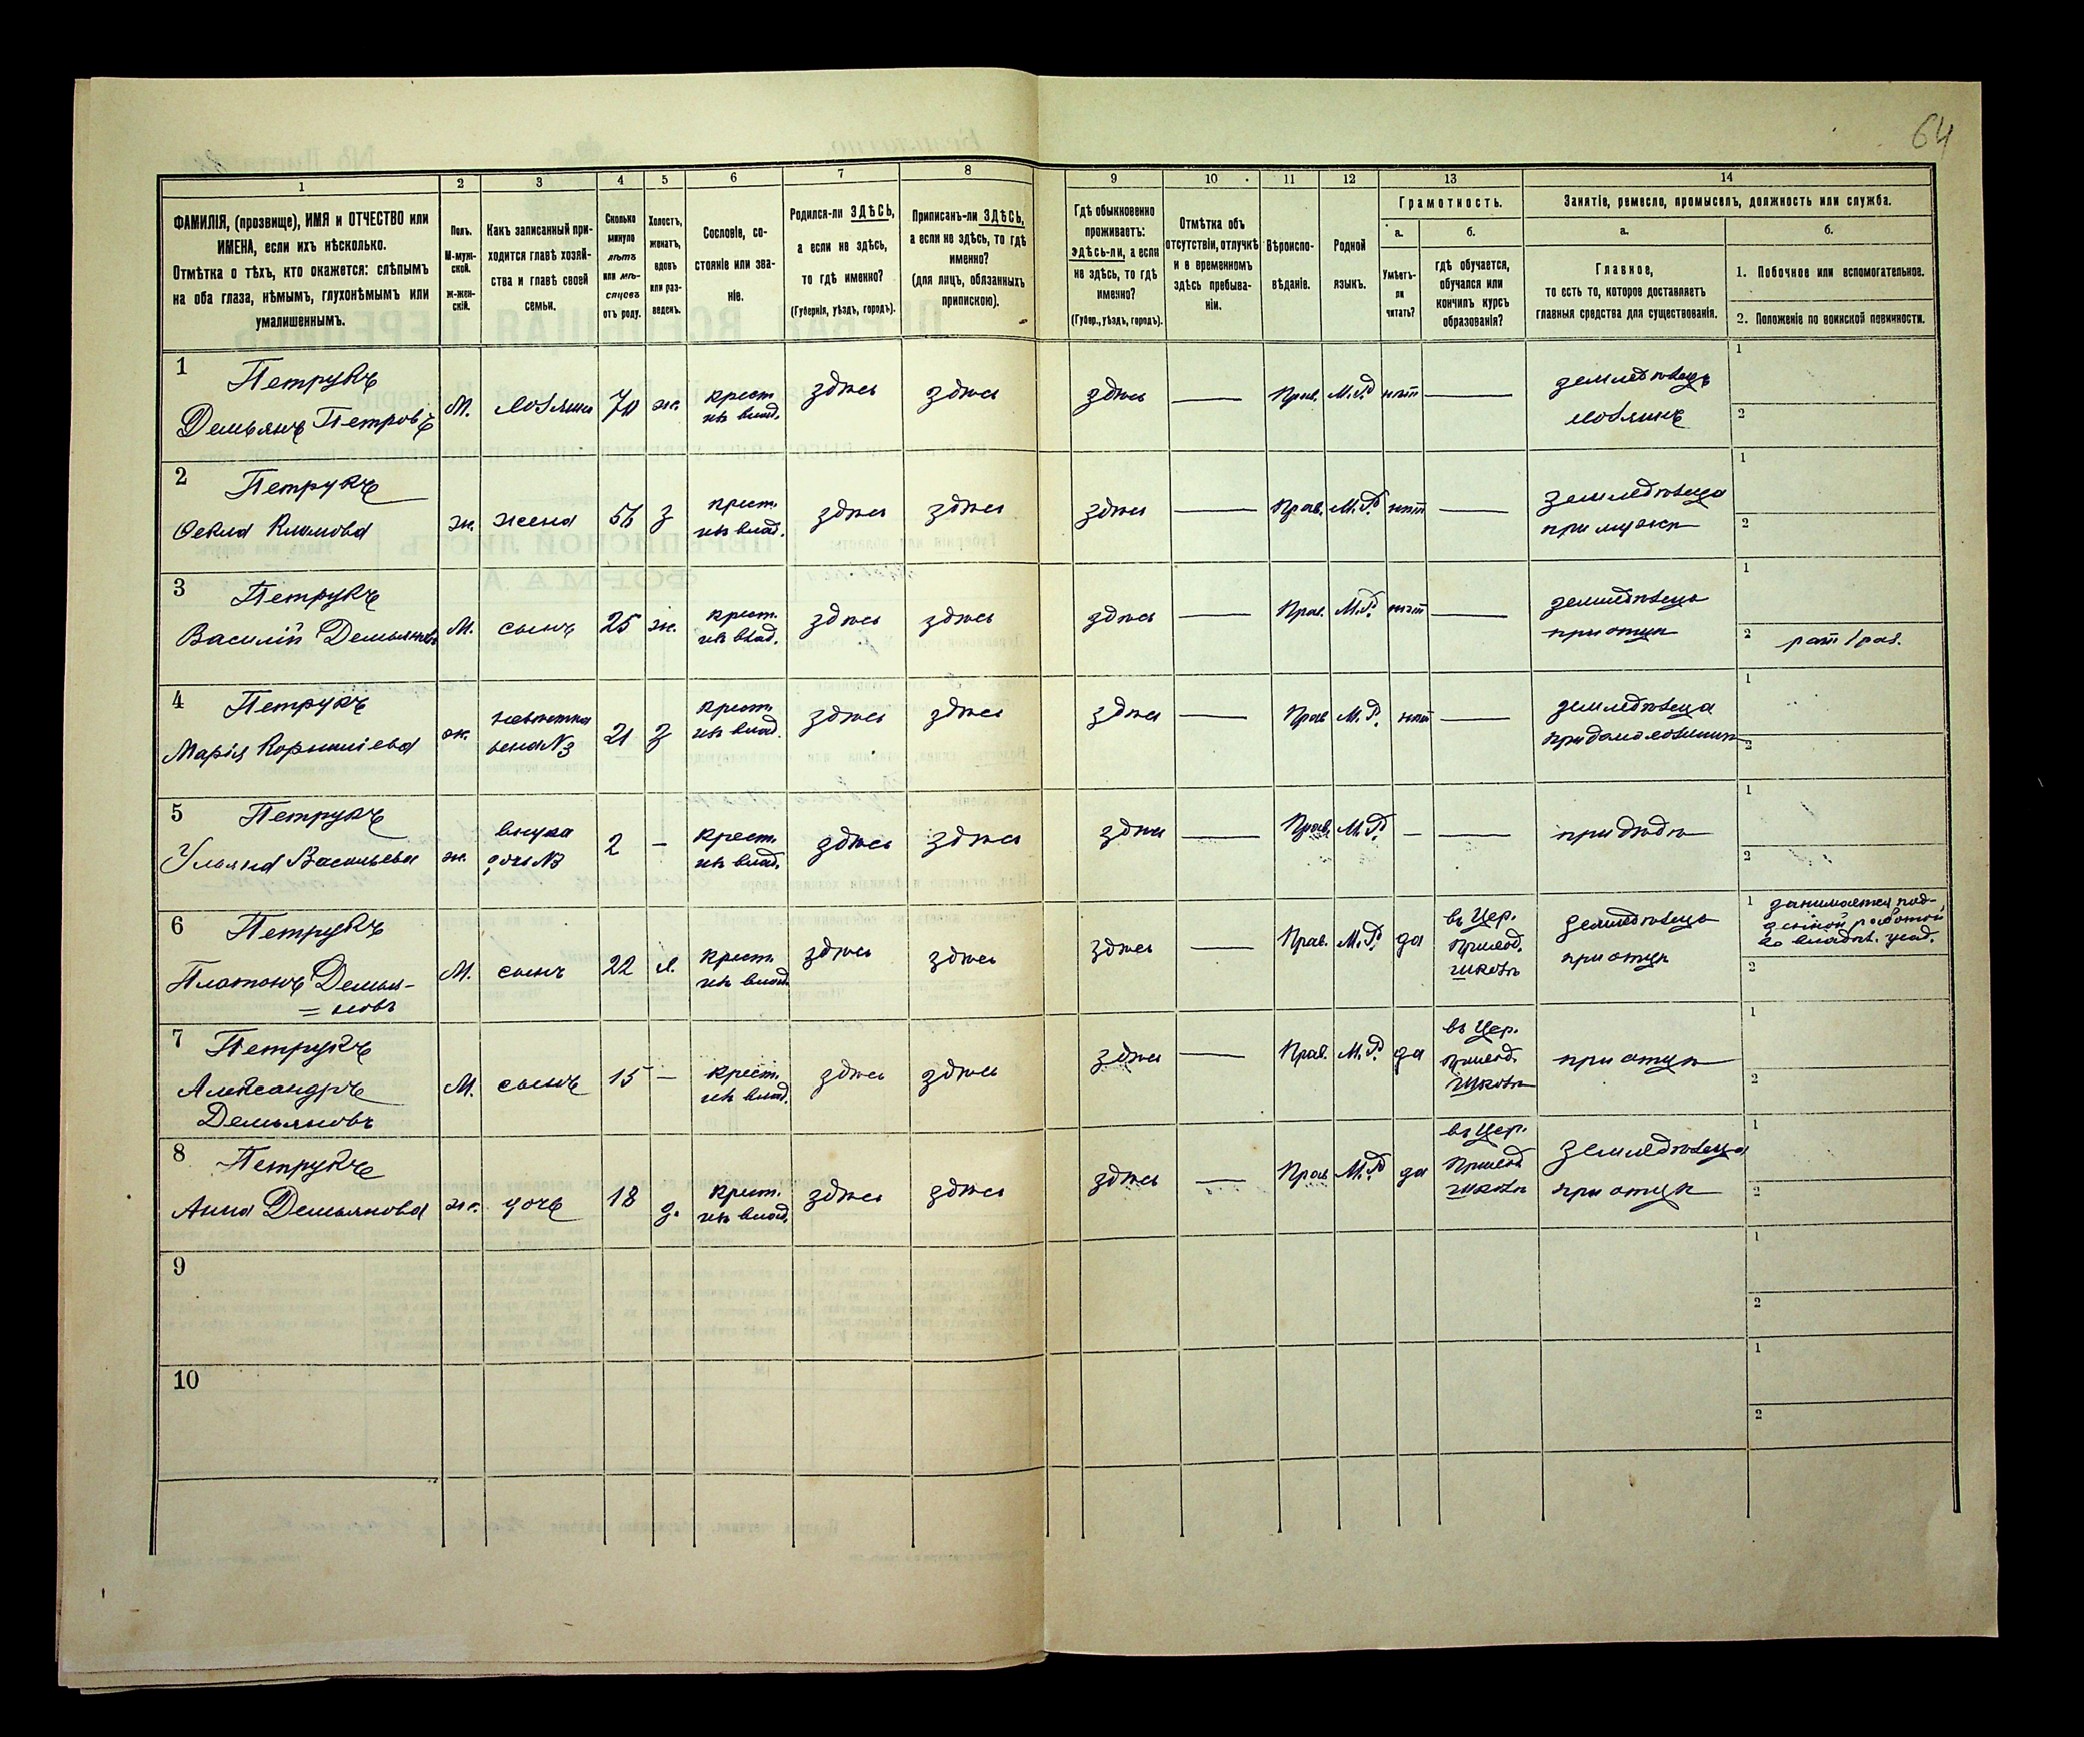 64
1
2
3
4
5
6
7
8
9
10
11
12
13
14
ФАМИЛІЯ, (прозвище), ИМЯ и ОТЧЕСТВО или
ИМЕНА, если ихъ нѣсколько.
Отмѣтка о тѣхъ, кто окажется: слѣпымъ
на оба глаза, нѣмымъ, глухонѣмымъ или
умалишеннымъ.
Полъ.
М-муж-
ской.
Ж-жен-
скій.
Какъ записанный при-
ходится главѣ хозяй-
ства и главѣ своей
семьи.
Сколько
минуло
лѣтъ
или мѣ-
сяцевъ
отъ роду.
Холостъ,
женатъ,
вдовъ
или раз-
веденъ.
Сословіе, со-
стояніе или зва-
ніе.
Родился-ли ЗДѢСЬ,
а если не здѣсь,
то гдѣ именно?
(Губернія, уѣздъ, городъ).
Приписанъ-ли ЗДѢСЬ,
а если не здѣсь, то гдѣ
именно?
(для лицъ, обязанныхъ
припискою).
Гдѣ обыкновенно
проживаетъ:
ЗДѢСЬ-ли, а если
не здѣсь, то гдѣ
именно?
(Губер., уѣздъ, городъ).
Отмѣтка объ
отсутствіи, отлучкѣ
и о временномъ
здѣсь пребыва-
ніи.
Вѣроиспо-
вѣданіе.
Родной
языкъ.
Грамотность.
а.
Умѣетъ-
ли
читать?
б.
гдѣ обучается,
обучался или
кончилъ курсъ
образованія?
Занятіе, ремесло, промыселъ, должность или служба.
а.
Главное,
то есть то, которое доставляетъ
главныя средства для существованія.
б.
1. Побочное или вспомогательное.
2. Положеніе по воинской повинности.
1
Петрукъ
Демьянъ Петровъ
М. хозяинъ 70 ж. крест. изъ влад. здѣсь здѣсь здѣсь — Прав. М.Р. нѣт — земледѣлецъ
хозяинъ
1
2
2
Петрукъ
Ѳекла Климова
ж. жена 56 з крест. изъ влад. здѣсь здѣсь здѣсь — Прав. М.Р. нѣт — земледѣлица
при мужѣ
1
2
3
Петрукъ
Василій Демьяновъ
М. сынъ 25 ж. крест. изъ влад. здѣсь здѣсь здѣсь — Прав. М.Р. нѣт — земледѣлецъ
при отцѣ
1
2 рат. 1 раз.
4
Петрукъ
Марія Корнилієва
ж. невѣстка
жена №3 21 з крест. изъ влад. здѣсь здѣсь здѣсь — Прав М.Р. нѣт — земледѣлица
при домохозяинѣ
1
2
5
Петрукъ
Ульяна Васильева
ж. внука
дочь №3 2 — крест. изъ влад. здѣсь здѣсь здѣсь — Прав. М.Р. — — при дѣдѣ
1
2
6
Петрукъ
Платонъ Демья-
=новъ
М. сынъ 22 х. крест. изъ влад. здѣсь здѣсь здѣсь — Прав. М.Р. да въ Цер.
Приход.
школѣ
земледѣлецъ
при отцѣ
1 занимается под-
денной работой
во владѣл.
2
7
Петрукъ
Александръ
Демьяновъ
М. сынъ 15 — крест. изъ влад. здѣсь здѣсь здѣсь — Прав. М.Р. да въ Цер.
Приход.
школѣ
при отцѣ
1
2
8
Петрукъ
Анна Демьянова
ж. дочь 18 д. крест. изъ влад. здѣсь здѣсь здѣсь — Прав М.Р. да въ Цер.
Приход
школѣ
земледѣлица
при отцѣ
1
2
9
1
2
10
1
2